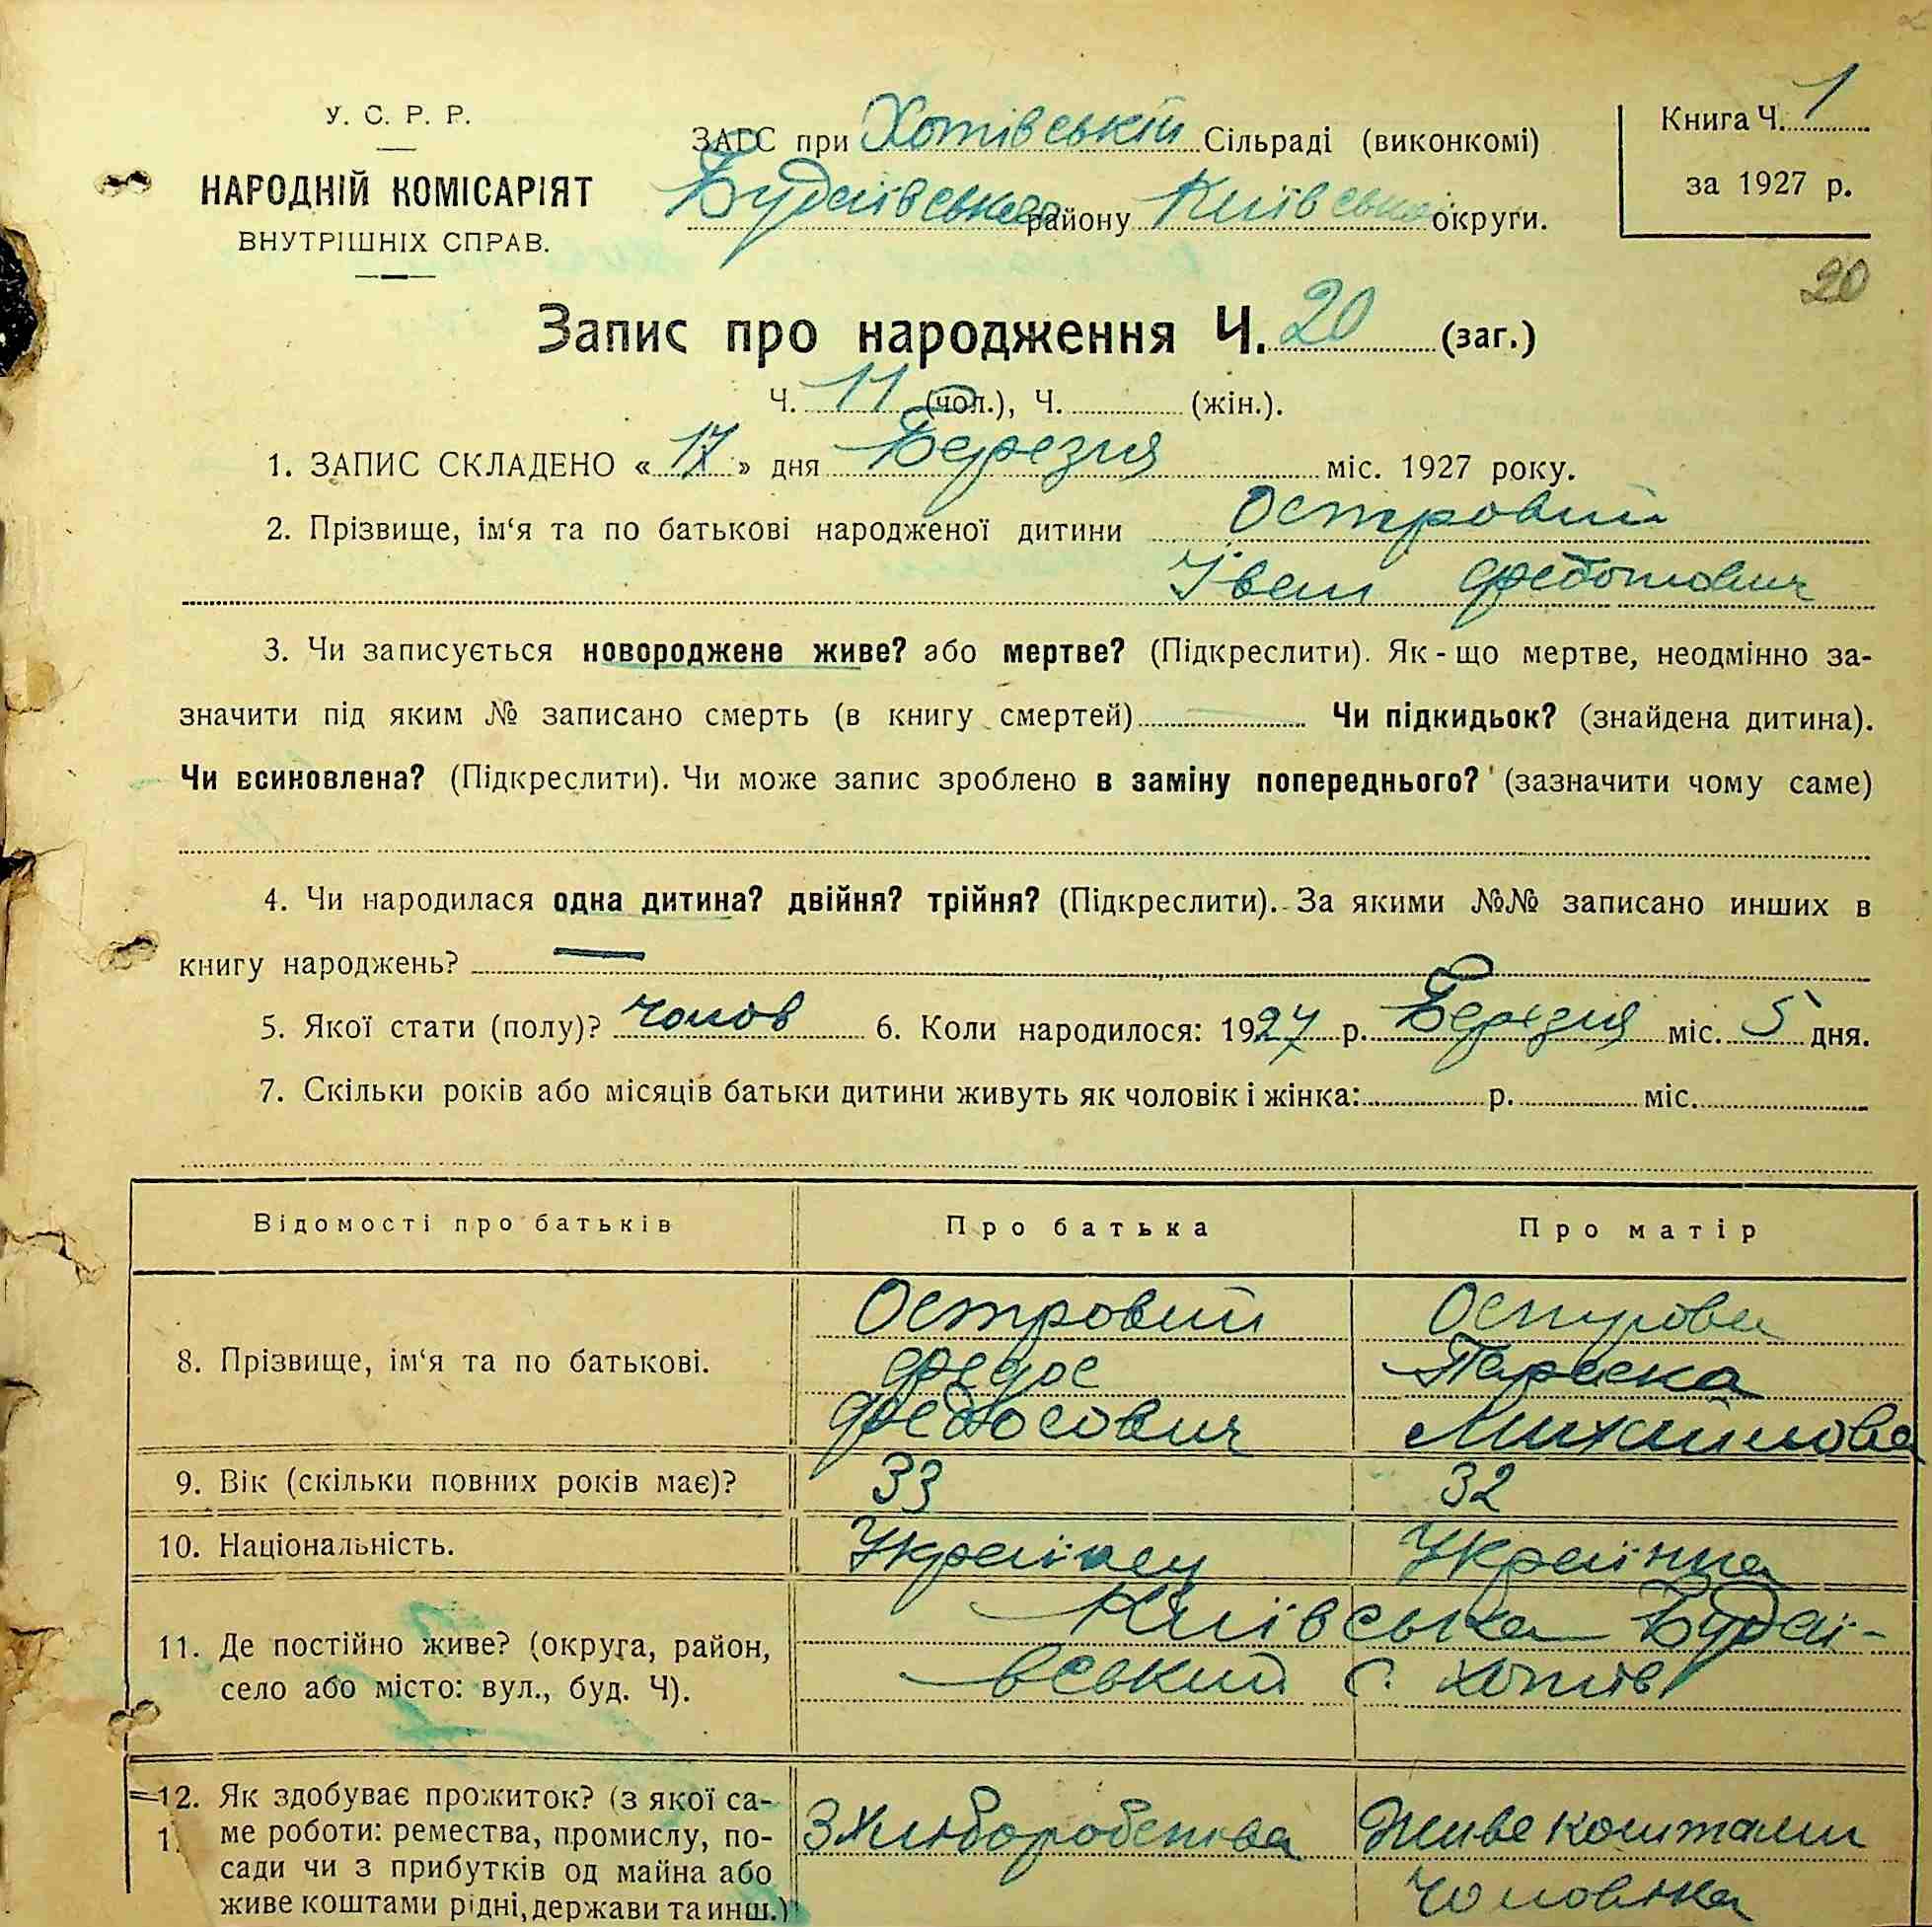 У. С. Р. Р.
НАРОДНІЙ КОМІСАРІЯТ
ВНУТРІШНІХ СПРАВ.
ЗАГС при Хотівській Сільраді (виконкомі)
Будаївського району Київської округи.
Книга Ч. 1
за 1927 р.
20
Запис про народження Ч. 20 (заг.)
Ч. 11 (чол.), Ч. (жін.).
1. ЗАПИС СКЛАДЕНО « 17 » дня Березня міс. 1927 року.
2. Прізвище, ім‘я та по батькові народженої дитини Островий
Іван
3. Чи записується новороджене живе? або мертве? (Підкреслити). Як - що мертве, неодмінно за-
значити під яким № записано смерть (в книгу смертей) Чи підкидьок? (знайдена дитина).
Чи всиновлена? (Підкреслити). Чи може запис зроблено в заміну попереднього? (зазначити чому саме)
4. Чи народилася одна дитина? двійня? трійня? (Підкреслити). За якими №№ записано инших в
книгу народжень? —
5. Якої стати (полу)? чолов 6. Коли народилося: 1927 р. Березня міс. 5 дня.
7. Скільки років або місяців батьки дитини живуть як чоловік і жінка: р. міс.
Відомості про батьків Про батька Про матір
8. Прізвище, ім‘я та по батькові.
Островий Острова
Федос Параска
Федосович Михайлова
9. Вік (скільки повних років має)? 33 32
10. Національність. Українец Українка
11. Де постійно живе? (округа, район,
село або місто: вул., буд. Ч).
Київська Будаї-
вський с. Хотів
12. Як здобуває прожиток? (з якої са-
ме роботи: ремества, промислу, по-
сади чи з прибутків од майна або
живе коштами рідні, держави та инш.)
З Хліборобства Живе коштами
чоловіка